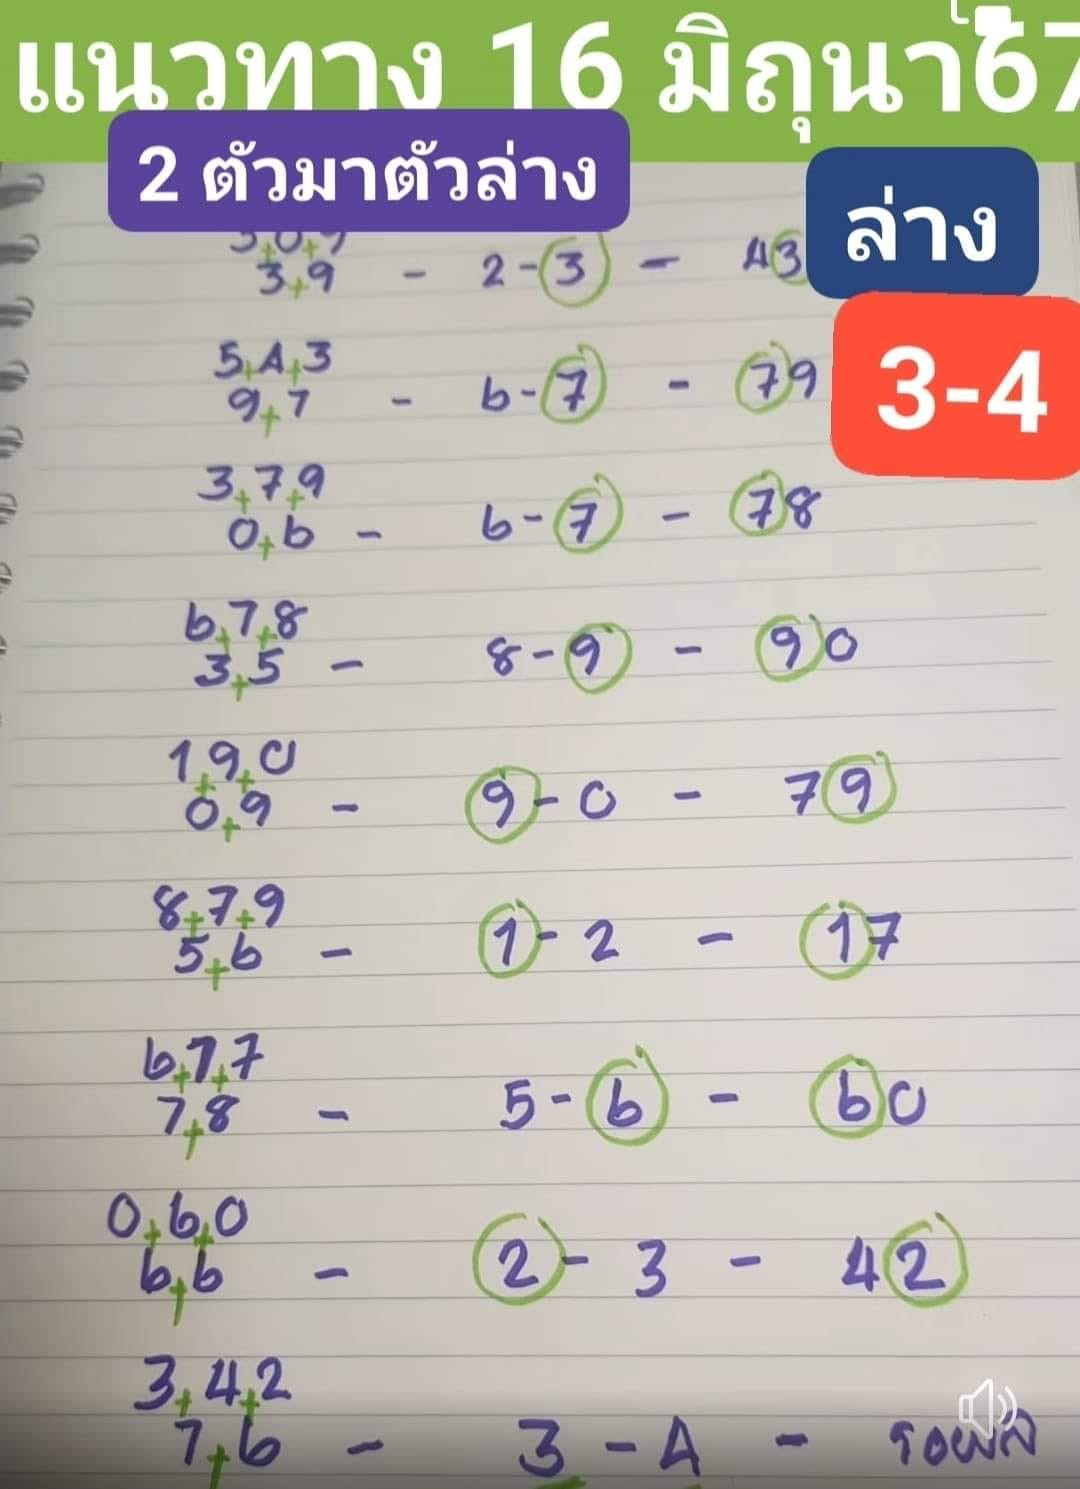 แนวทาง 16 มิถุนา 67
2 ตัวมาตัวล่าง
ล่าง
3-4
3+0+9
3+9 - 2-3 - 43
5+4+3
9+7 - 6-7 - 79
3+7+9
0+6 - 6-7 - 78
6+7+8
3+5 - 8-9 - 90
1+9+0
0+9 - 9-0 - 79
8+7+9
5+6 - 1-2 - 17
6+7+7
7+8 - 5-6 - 60
0+6+0
6+6 - 2-3 - 42
3+4+2
7+6 - 3-4 - รอผล